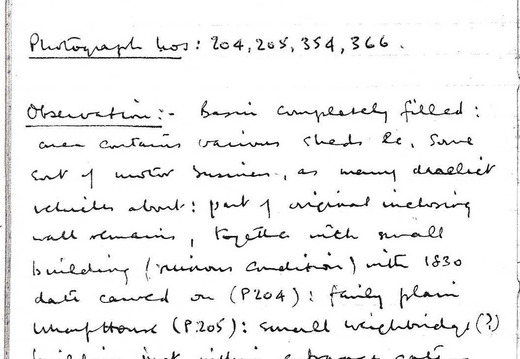 Photograph nos: 204, 205, 354, 366.
Observation:- Basin completely filled:
area contains various sheds &c, some
sort of motor business, as many derelict
vehicles about: part of original inclosing
wall remains, together with small
building (ruinous condition) with 1830
date carved on (P204): fairly plain
Wharf House (P.205): small weighbridge (?)
building just within entrance gate